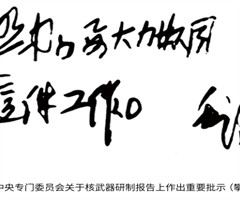 照办要大力协同
这件工作。
中央专门委员会关于核武器研制报告上作出重要批示 (